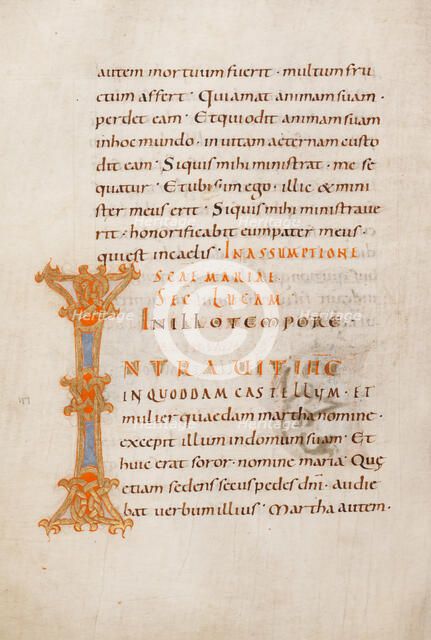 autem mortuum fuerit · multum fru
ctum affert · Qui amat animam suam ·
perdet eam · Et qui odit animam suam
in hoc mundo · in vitam aeternam custo
dit eam · Si quis mihi ministrat · me se
quatur · Et ubi sum ego · illic & mini
ster meus erit · Si quis mihi ministrave
rit · honorificabit eum pater meus ·
qui est in caelis · IN ASSUMPTIONE
SCAE MARIAE
SEC LUCAM
IN ILLO TEMPORE
INTRAUIT IHC
IN QUODDAM CASTELLUM · ET
mulier quaedam martha nomine ·
excepit illum in domum suam · Et
huic erat soror · nomine maria · Quę
etiam sedens secus pedes dni · audie
bat verbum illius · Martha autem ·